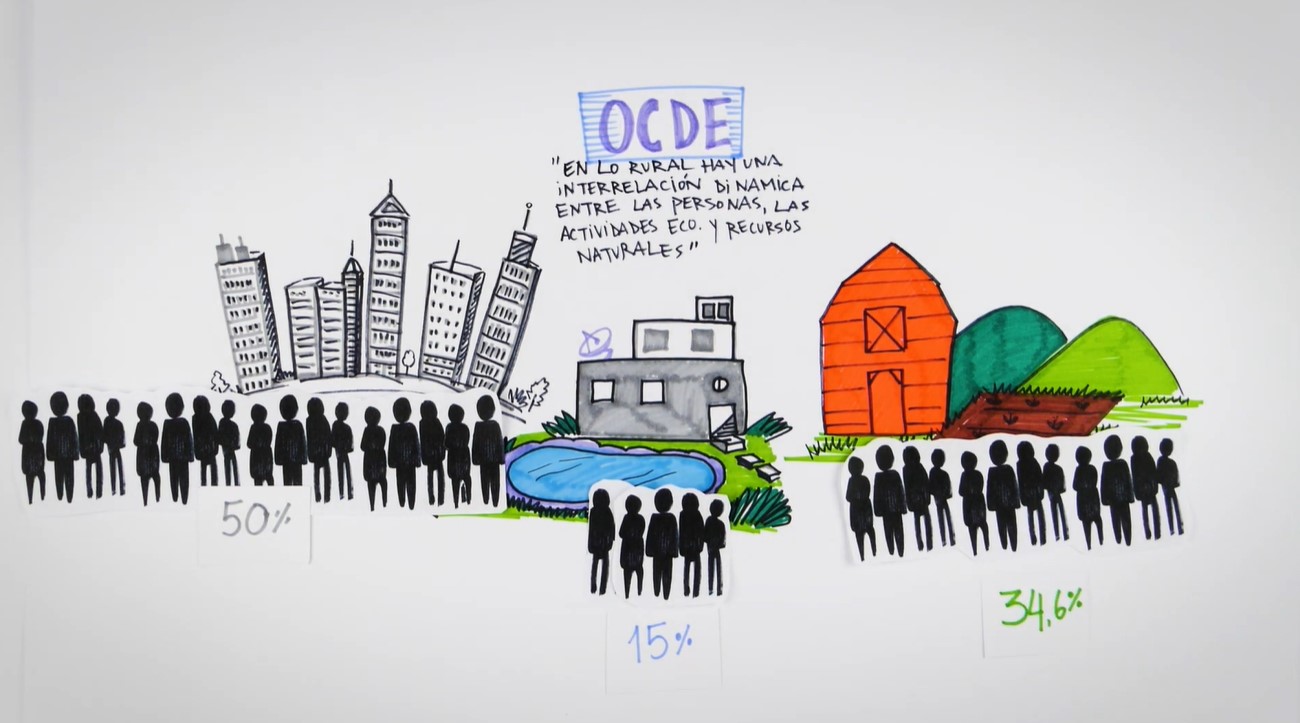 OCDE
"EN LO RURAL HAY UNA
INTERRELACIÓN DINAMICA
ENTRE LAS PERSONAS, LAS
ACTIVIDADES ECO. Y RECURSOS
NATURALES"
50%
15%
34,6%